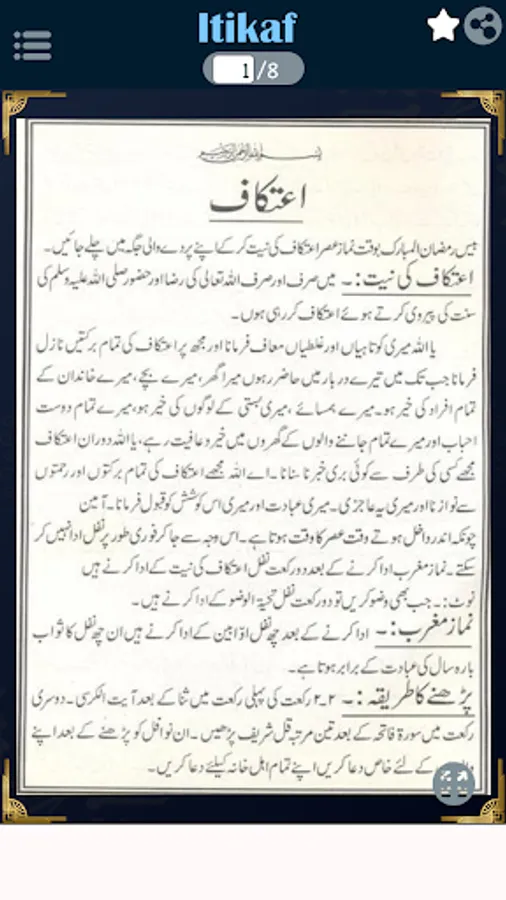 Itikaf
1/8
بسم اللہ الرحمن الرحیم
اعتکاف
بیس رمضان المبارک بوقت نماز عصر اعتکاف کی نیت کر کے اپنے پردے والی جگہ میں چلے جائیں۔
اعتکاف کی نیت:۔ میں صرف اور صرف اللہ تعالی کی رضا اور حضور صلی اللہ علیہ وسلم کی
سنت کی پیروی کرتے ہوئے اعتکاف کر رہی ہوں۔
یا اللہ میری کوتاہیاں اور غلطیاں معاف فرمانا اور مجھ پر اعتکاف کی تمام برکتیں نازل
فرمانا جب تک میں تیرے دربار میں حاضر رہوں میرا گھر، میرے بچے، میرے خاندان کے
تمام افراد کی خیر ہو۔ میرے ہمسائے، میری بستی کے لوگوں کی خیر ہو، میرے تمام دوست
احباب اور میرے تمام جاننے والوں کے گھروں میں خیر و عافیت رہے، یا اللہ دوران اعتکاف
مجھے کسی کی طرف سے کوئی بری خبر نا سنانا۔ اے اللہ مجھے اعتکاف کی تمام برکتوں اور رحمتوں
سے نوازنا اور میری یہ عاجزی۔ میری عبادت اور میری اس کوشش کو قبول فرمانا۔ آمین
چونکہ اندر داخل ہوتے وقت عصر کا وقت ہوتا ہے۔ اس وجہ سے جا کر فوری طور پر نفل ادا نہیں کر
سکتے۔ نماز مغرب ادا کرنے کے بعد دو رکعت نفل اعتکاف کی نیت کے ادا کرنے ہیں
نوٹ:۔ جب بھی وضو کریں تو دو رکعت نفل تحیۃ الوضو کے ادا کرنے ہیں۔
نماز مغرب:۔ ادا کرنے کے بعد چھ نفل اوّابین کے ادا کرنے ہیں ان چھ نفل کا ثواب
بارہ سال کی عبادت کے برابر ہوتا ہے۔
پڑھنے کا طریقہ:۔ ۲-۲ رکعت کی پہلی رکعت میں ثنا کے بعد آیت الکرسی۔ دوسری
رکعت میں سورۃ فاتحہ کے بعد تین مرتبہ قل شریف پڑھیں۔ ان نوافل کو پڑھنے کے بعد اپنے
کے لئے خاص دعا کریں اپنے تمام اہل خانہ کیلئے دعا کریں۔